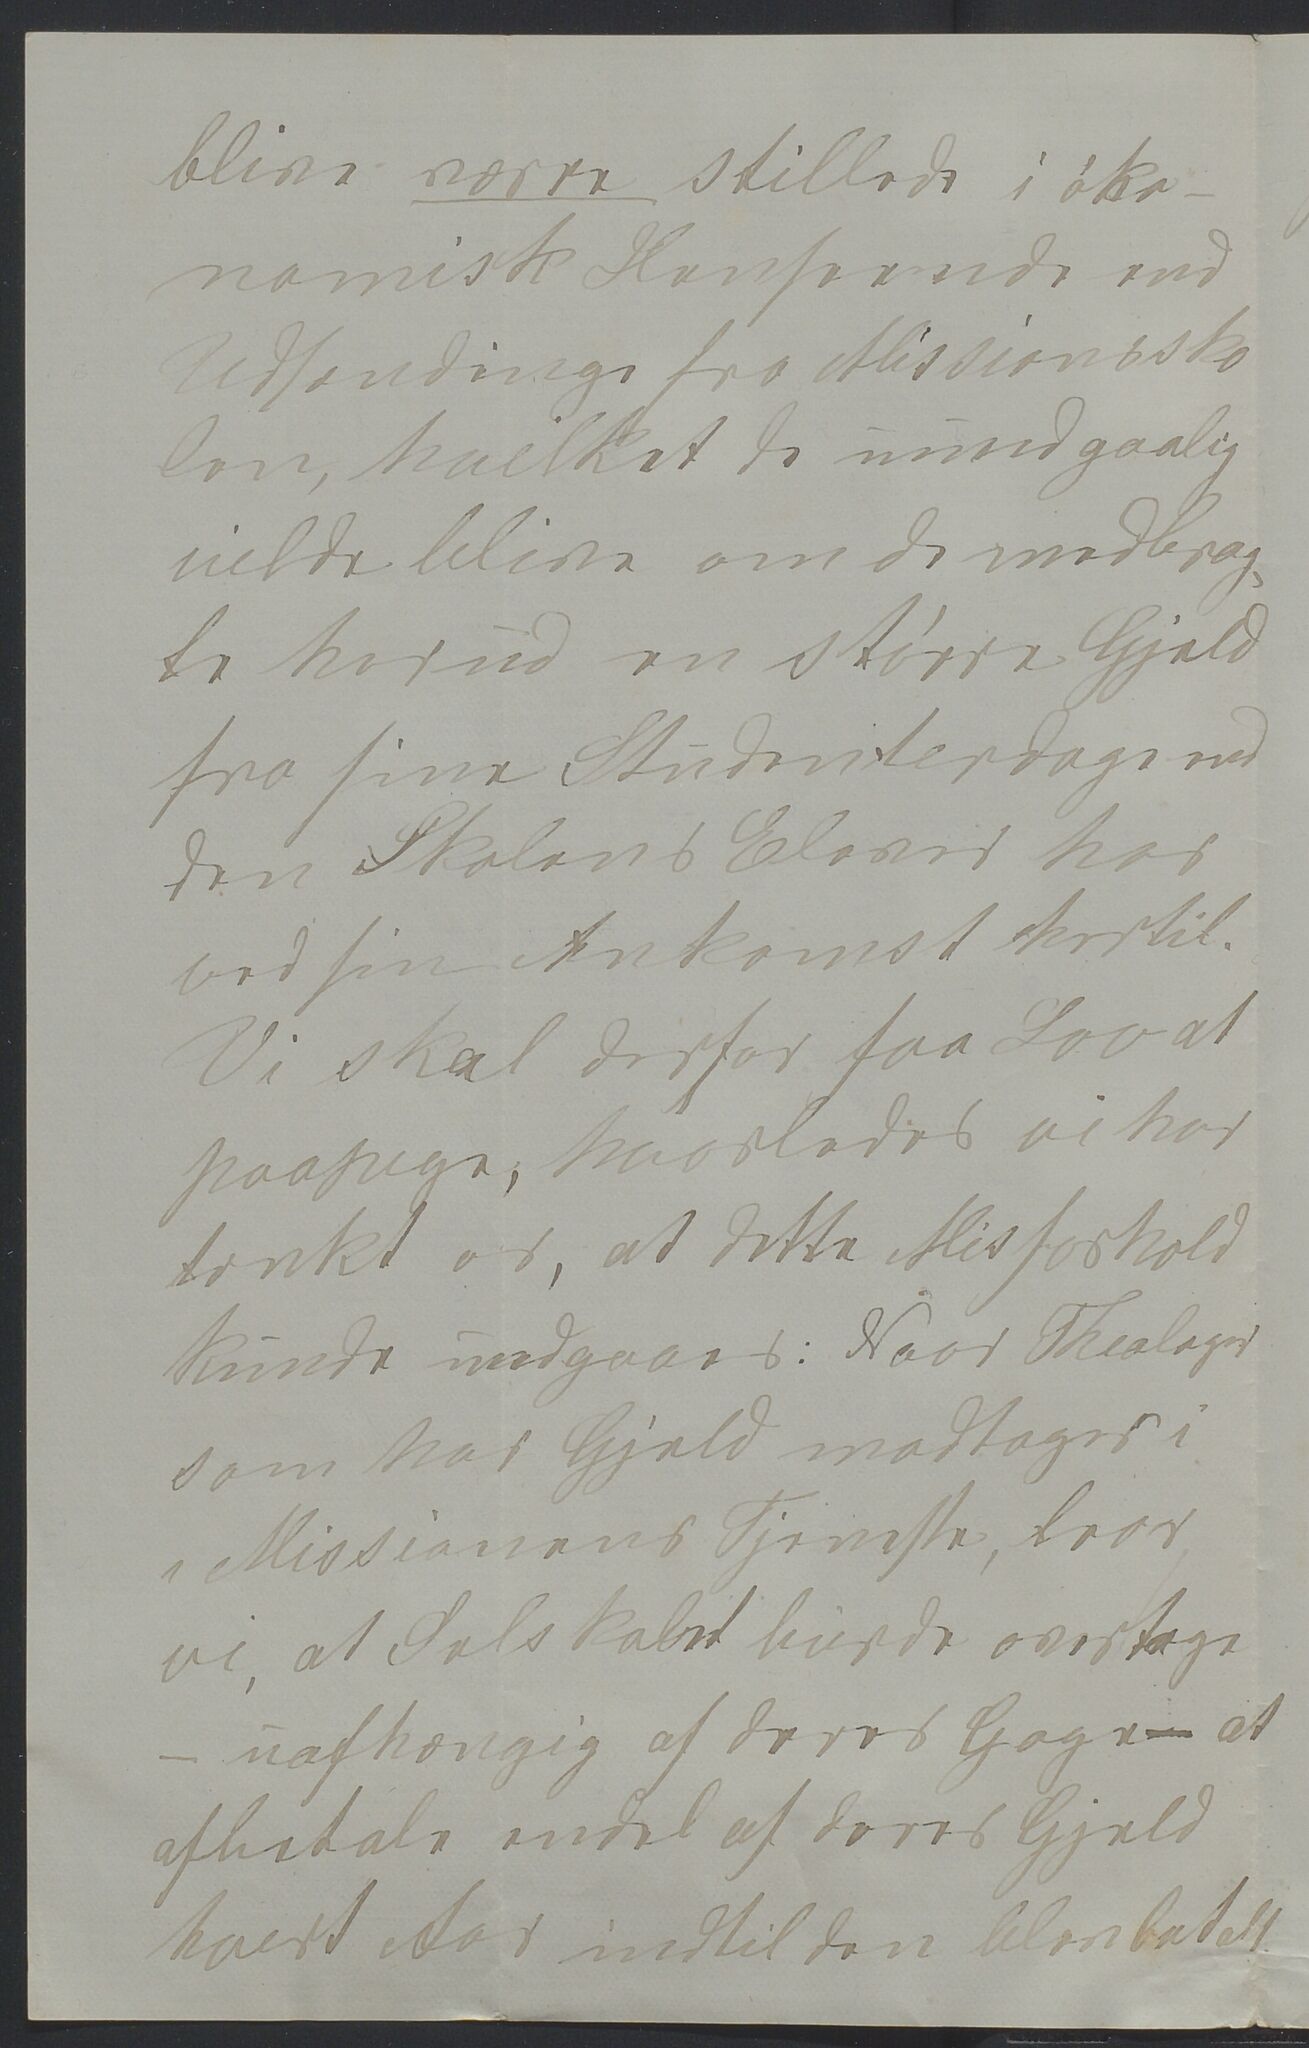 blive værre stillede i öko-
nomisk Henseende end
Udsendinge fra Missionssko
len, hvilket de uundgaalig
vilde blive om de medbrag-
te herud en större Gjeld
fra sine Studenterdage end
den Skolens Elever har
ved sin Ankomst hertil.
Vi skal derfor faa Lov at
paapege, hvorledes vi har
tenkt os, at dette Misforhold
kunde undgaaes: Naar Theologer
som har Gjeld modtages i
Missionens Tjeneste, tror
vi, at Selskabet burde overtage
- uafhængig af deres Gage - at
afbetale endel af deres Gjeld
hvert Aar indtil den blev betalt.